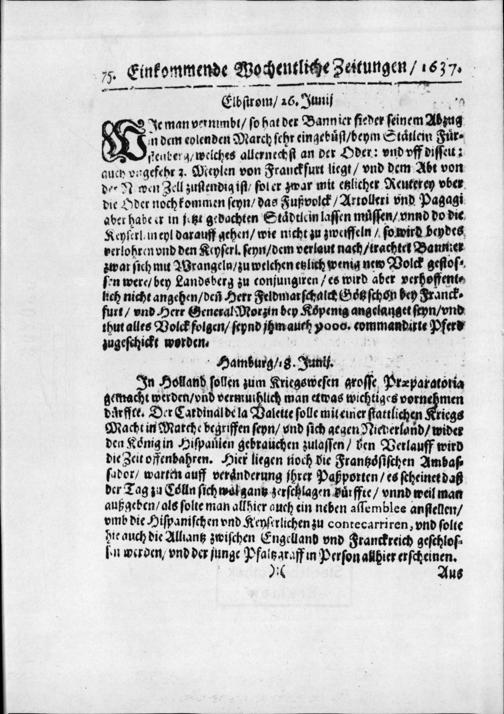 75. Einkommende Wochentliche Zeitungen / 1637.
Elbstrom / 26. Junij
WJe man vernimbt / so hat der Bannier sieder seinem Abzug
in dem eylenden March sehr eingebüst / beym Stätlein Für-
stenberg / welches allernechst an der Oder: und vff disseit:
auch vngefehr 2. Meylen von Franckfurt liegt / vnd dem Abt von
der Newen Zell zustendig ist / sol er zwar mit etzlicher Reuterey vber
die Oder noch kommen seyn / das Fußvolck / Artolleri vnd Pagagi
aber habe er in jetzt gedachten Städtlein lassen müssen / vnnd do die
Keyserl. in eyl darauff gehen / wie nicht zu zweiffeln / so wird beydes
verlohren vnd den Keyserl. seyn / dem verlaut nach / trachtet Bannier
zwar sich mit Wrangeln / zu welchen etzlich wenig new Volck gestos-
sen were / bey Landsberg zu conjungiren / es wird aber verhoffent-
lich nicht angehen / deñ Herr Feldmarschalck Götz schon bey Franck-
furt / vnd Herr General Morzin bey Köpenig angelanget seyn / vnd
thut alles Volck folgen / seynd jhm auch 9000. commandirte Pferd
zugeschickt worden.
Hamburg / 18. Junij.
In Holland sollen zum Kriegswesen grosse Præparatoria
gemacht werden / vnd vermuhlich man etwas wichtiges vornehmen
dürffte. Der Cardinal de la Valette solle mit einer stattlichen Kriegs
Macht in Marche begriffen seyn / vnd sich gegen Niederland / wider
den König in Hispanien gebrauchen zulassen / den Verlauff wird
die Zeit offenbahren. Hier liegen noch die Frantzösischen Ambas-
sador / warten auff veränderung jhrer Paßporten / es scheinet daß
der Tag zu Cölln sich wol gantz zerschlagen dürffte / vnnd weil man
außgeben / als solte man allhier auch ein neben assemblee anstellen /
vmb die Hispanischen vnd Keyserlichen zu contecarriren, vnd solte
hie auch die Alliantz zwischen Engelland vnd Franckreich geschlos-
sen werden / vnd der junge Pfaltzgraff in Person allhier erscheinen.
):( Aus